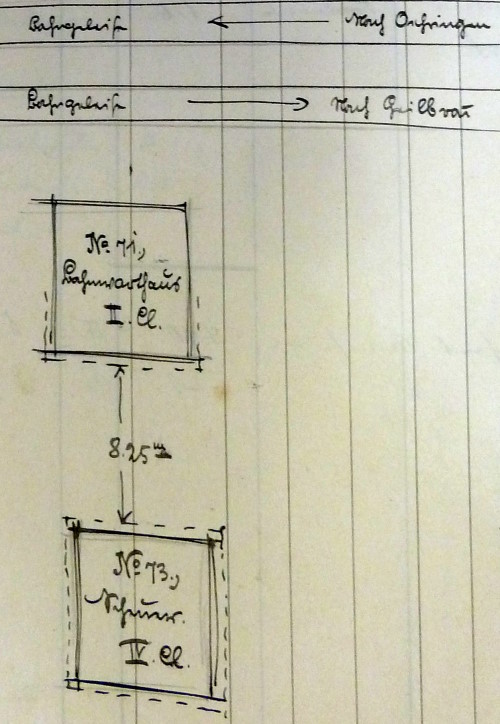 Bahngeleise Nach Oehringen
Bahngeleise Nach Heilbron̄
No. 71,
Bahnwarthaus
II. Cl.
8.25 m
No. 73,
Scheuer.
IV. Cl.